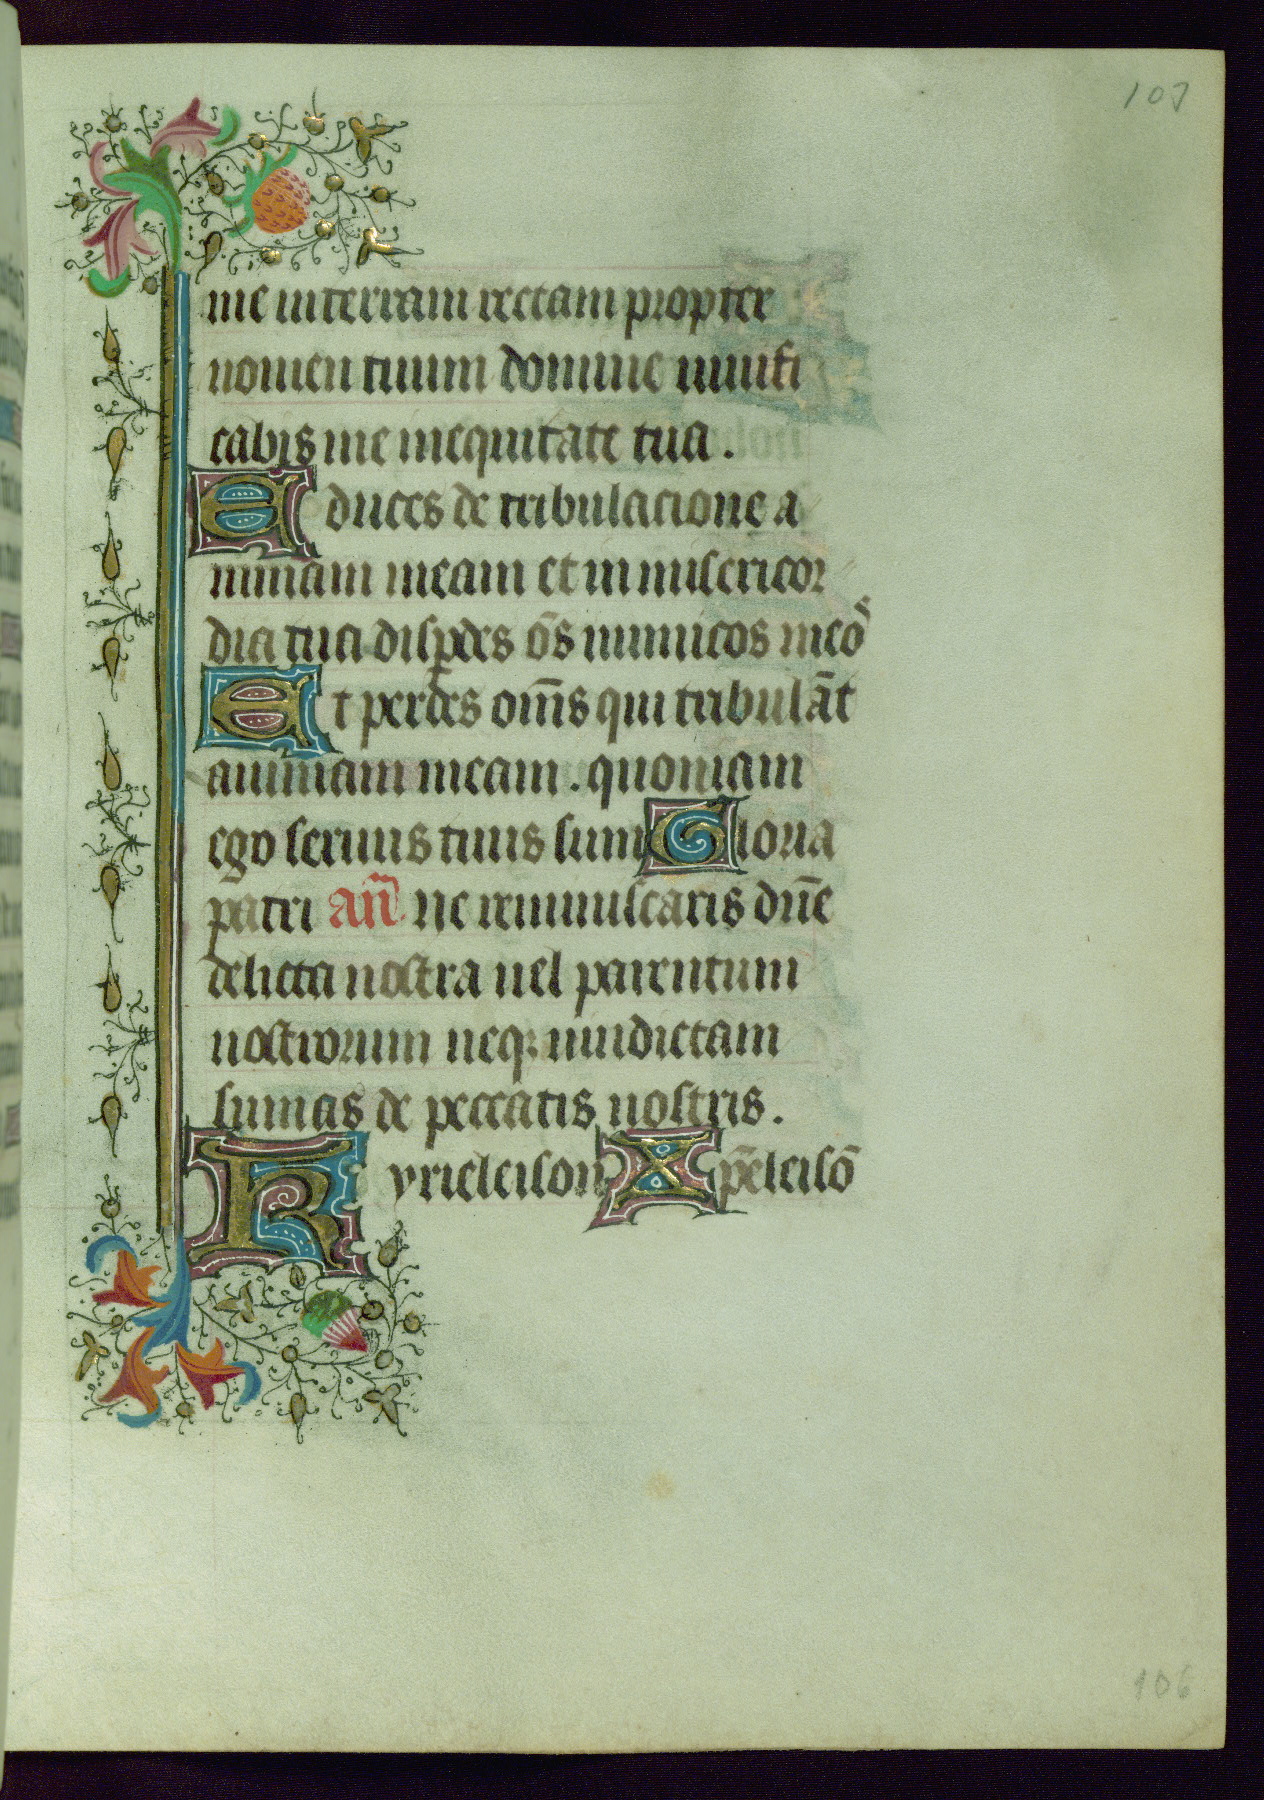 107
me in terram rectam propter
nomen tuum domine uiuifi
cabis me inequitate tua.
Educes de tribulacione a
nimam meam et in misericor
dia tua disꝑdes oēs inimicos meōs
Et perdes om̄s qui tribulāt
animam meam. quoniam
ego seruus tuus sum Gloria
patri an̄ ne reminiscaris dn̄e
delicta nostra uel parentum
nostrorum neqꝫ uindictam
sumas de peccatis nostris.
Kyrieleison Xp̄eleisō
106